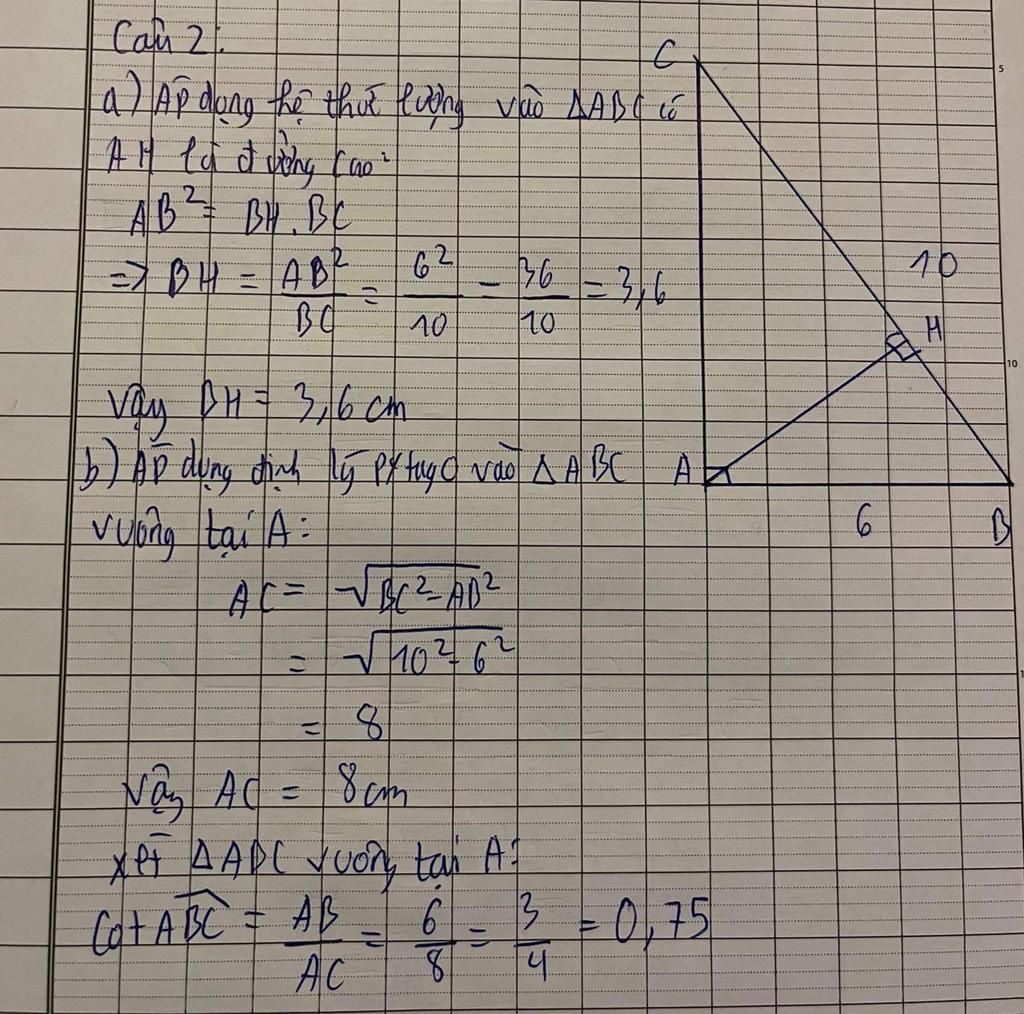 Câu 2:
a) Áp dụng hệ thức lượng vào ΔABC có
AH là đường cao:
AB² = BH.BC
=> BH = AB²/BC = 6²/10 = 36/10 = 3,6
Vậy BH = 3,6 cm
b) Áp dụng định lý Pytago vào ΔABC
vuông tại A:
AC = √(BC² - AB²)
= √(10² - 6²)
= 8
Vậy AC = 8cm
Xét ΔABC vuông tại A:
Cot ABC = AB/AC = 6/8 = 3/4 = 0,75
C
10
H
A
6
B
5
10
1